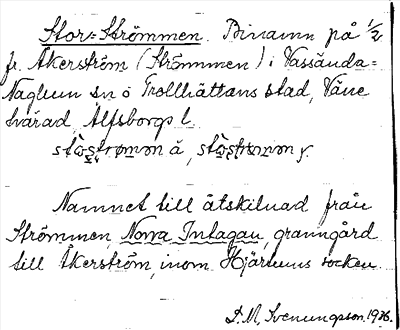 Stor-Strömmen. Binamn på 1/2
fr. Åkerström (Strömmen) i Vassända-
Naglum sn o Trollhättans stad, Väne
härad, Älfsborgs l.
Namnet till åtskilnad från
Strömmen, Norra Intagan, granngård
till Åkerström, inom Hjärtums socken.
D. M. Svenungsson. 1916.